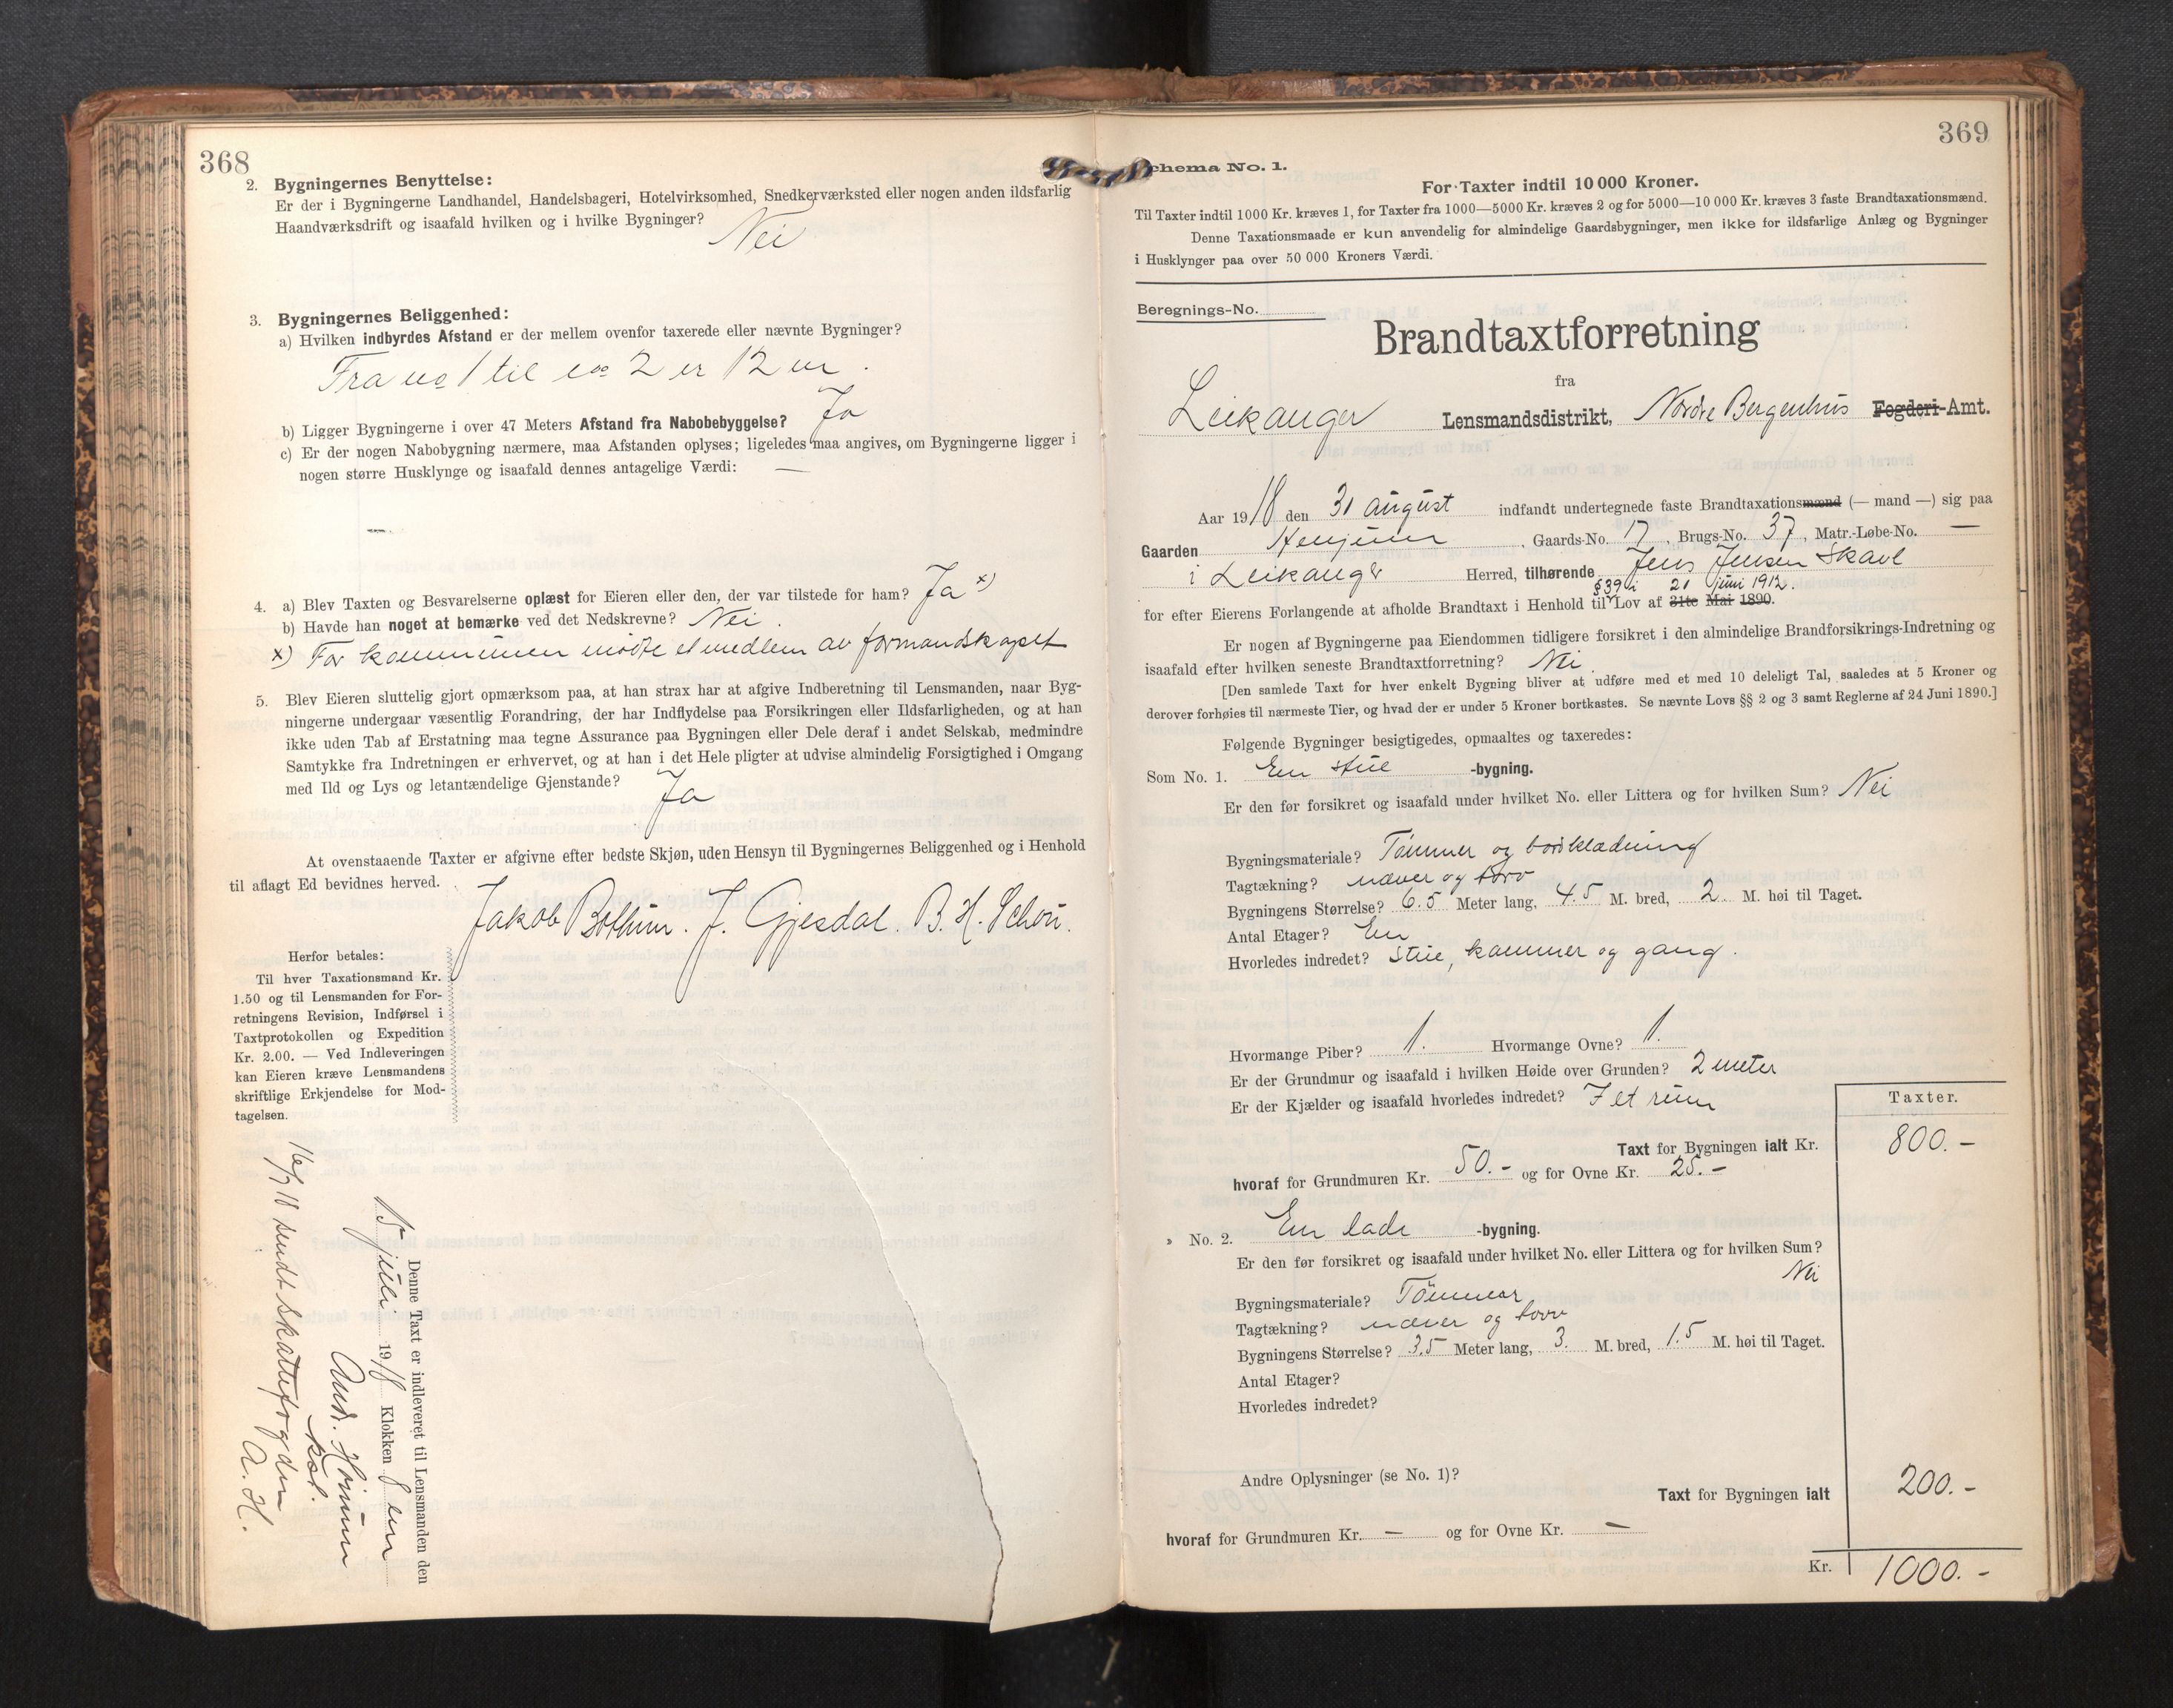 368
2. Bygningernes Benyttelse:
Er der i Bygningerne Landhandel, Handelsbageri, Hotelvirksomhed, Snedkerværksted eller nogen anden ildsfarlig
Haandværksdrift og isaafald hvilken og i hvilke Bygninger?
Nei
3. Bygningernes Beliggenhed:
a) Hvilken indbyrdes Afstand er der mellem ovenfor taxerede eller nævnte Bygninger?
Fra no 1 til no 2 er 12 m.
b) Ligger Bygningerne i over 47 Meters Afstand fra Nabobebyggelse? Ja
c) Er der nogen Nabobygning nærmere, maa Afstanden oplyses; ligeledes maa angives, om Bygningerne ligger i
nogen større Husklynge og isaafald dennes antagelige Værdi: —
4. a) Blev Taxten og Besvarelserne oplæst for Eieren eller den, der var tilstede for ham? Ja x)
b) Havde han noget at bemærke ved det Nedskrevne? Nei.
x) For kommunen mødte et medlem av formandskapet
5. Blev Eieren sluttelig gjort opmærksom paa, at han strax har at afgive Indberetning til Lensmanden, naar Byg-
ningerne undergaar væsentlig Forandring, der har Indflydelse paa Forsikringen eller Ildsfarligheden, og at han
ikke uden Tab af Erstatning maa tegne Assurance paa Bygningen eller Dele deraf i andet Selskab, medmindre
Samtykke fra Indretningen er erhvervet, og at han i det Hele pligter at udvise almindelig Forsigtighed i Omgang
med Ild og Lys og letantændelige Gjenstande?
Ja
At ovenstaaende Taxter er afgivne efter bedste Skjøn, uden Hensyn til Bygningernes Beliggenhed og i Henhold
til aflagt Ed bevidnes herved.
Jakob Bothun. J. Gjesdal. B. H. Schou.
Herfor betales:
Til hver Taxationsmand Kr.
1.50 og til Lensmanden for For-
retningens Revision, Indførsel i
Taxtprotokollen og Expedition
Kr. 2.00. — Ved Indleveringen
kan Eieren kræve Lensmandens
skriftlige Erkjendelse for Mod-
tagelsen.
Denne Taxt er indleveret til Lensmanden den
15 juli 1918 Klokken 8 em
And. Hønum
kst.
sendt skattefogden
A. H.
369
chema No. 1.
For Taxter indtil 10 000 Kroner.
Til Taxter indtil 1000 Kr. kræves 1, for Taxter fra 1000—5000 Kr. kræves 2 og for 5000—10 000 Kr. kræves 3 faste Brandtaxationsmænd.
Denne Taxationsmaade er kun anvendelig for almindelige Gaardsbygninger, men ikke for ildsfarlige Anlæg og Bygninger
i Husklynger paa over 50 000 Kroners Værdi.
Beregnings-No.
Brandtaxtforretning
fra
Leikanger Lensmandsdistrikt, Nordre Bergenhus Fogderi-Amt.
Aar 1918 den 31 august indfandt undertegnede faste Brandtaxationsmænd (— mand —) sig paa
Gaarden Henjum, Gaards-No. 17, Brugs-No. 37, Matr.-Løbe-No. —
i Leikanger Herred, tilhørende Jens Jensen Skavl
§39 i 21 juni 1912.
for efter Eierens Forlangende at afholde Brandtaxt i Henhold til Lov af 31te Mai 1890.
Er nogen af Bygningerne paa Eiendommen tidligere forsikret i den almindelige Brandforsikrings-Indretning og
isaafald efter hvilken seneste Brandtaxtforretning? Nei.
[Den samlede Taxt for hver enkelt Bygning bliver at udføre med et med 10 deleligt Tal, saaledes at 5 Kroner og
derover forhøies til nærmeste Tier, og hvad der er under 5 Kroner bortkastes. Se nævnte Lovs §§ 2 og 3 samt Reglerne af 24 Juni 1890.]
Følgende Bygninger besigtigedes, opmaaltes og taxeredes:
Som No. 1. En stue -bygning.
Er den før forsikret og isaafald under hvilket No. eller Littera og for hvilken Sum? Nei
Bygningsmateriale? Tømmer og bordklædning
Tagtækning? næver og torv
Bygningens Størrelse? 6.5 Meter lang, 4.5 M. bred, 2 M. høi til Taget.
Antal Etager? En
Hvorledes indredet? Stue, kammer og gang.
Hvormange Piber? 1. Hvormange Ovne? 1.
Er der Grundmur og isaafald i hvilken Høide over Grunden? 2 meter
Er der Kjælder og isaafald hvorledes indredet? I et rum
Taxter.
Taxt for Bygningen ialt Kr. 800.-
hvoraf for Grundmuren Kr. 50.- og for Ovne Kr. 25.-
» No. 2. En lade -bygning.
Er den før forsikret og isaafald under hvilket No. eller Littera og for hvilken Sum?
Nei
Bygningsmateriale? Tømmer
Tagtækning? næver og torv
Bygningens Størrelse? 3.5 Meter lang, 3. M. bred, 1.5 M. høi til Taget.
Antal Etager?
Hvorledes indredet?
Andre Oplysninger (se No. 1)?
Taxt for Bygningen ialt 200.-
hvoraf for Grundmuren Kr. — og for Ovne Kr. —
Kr. 1000.-